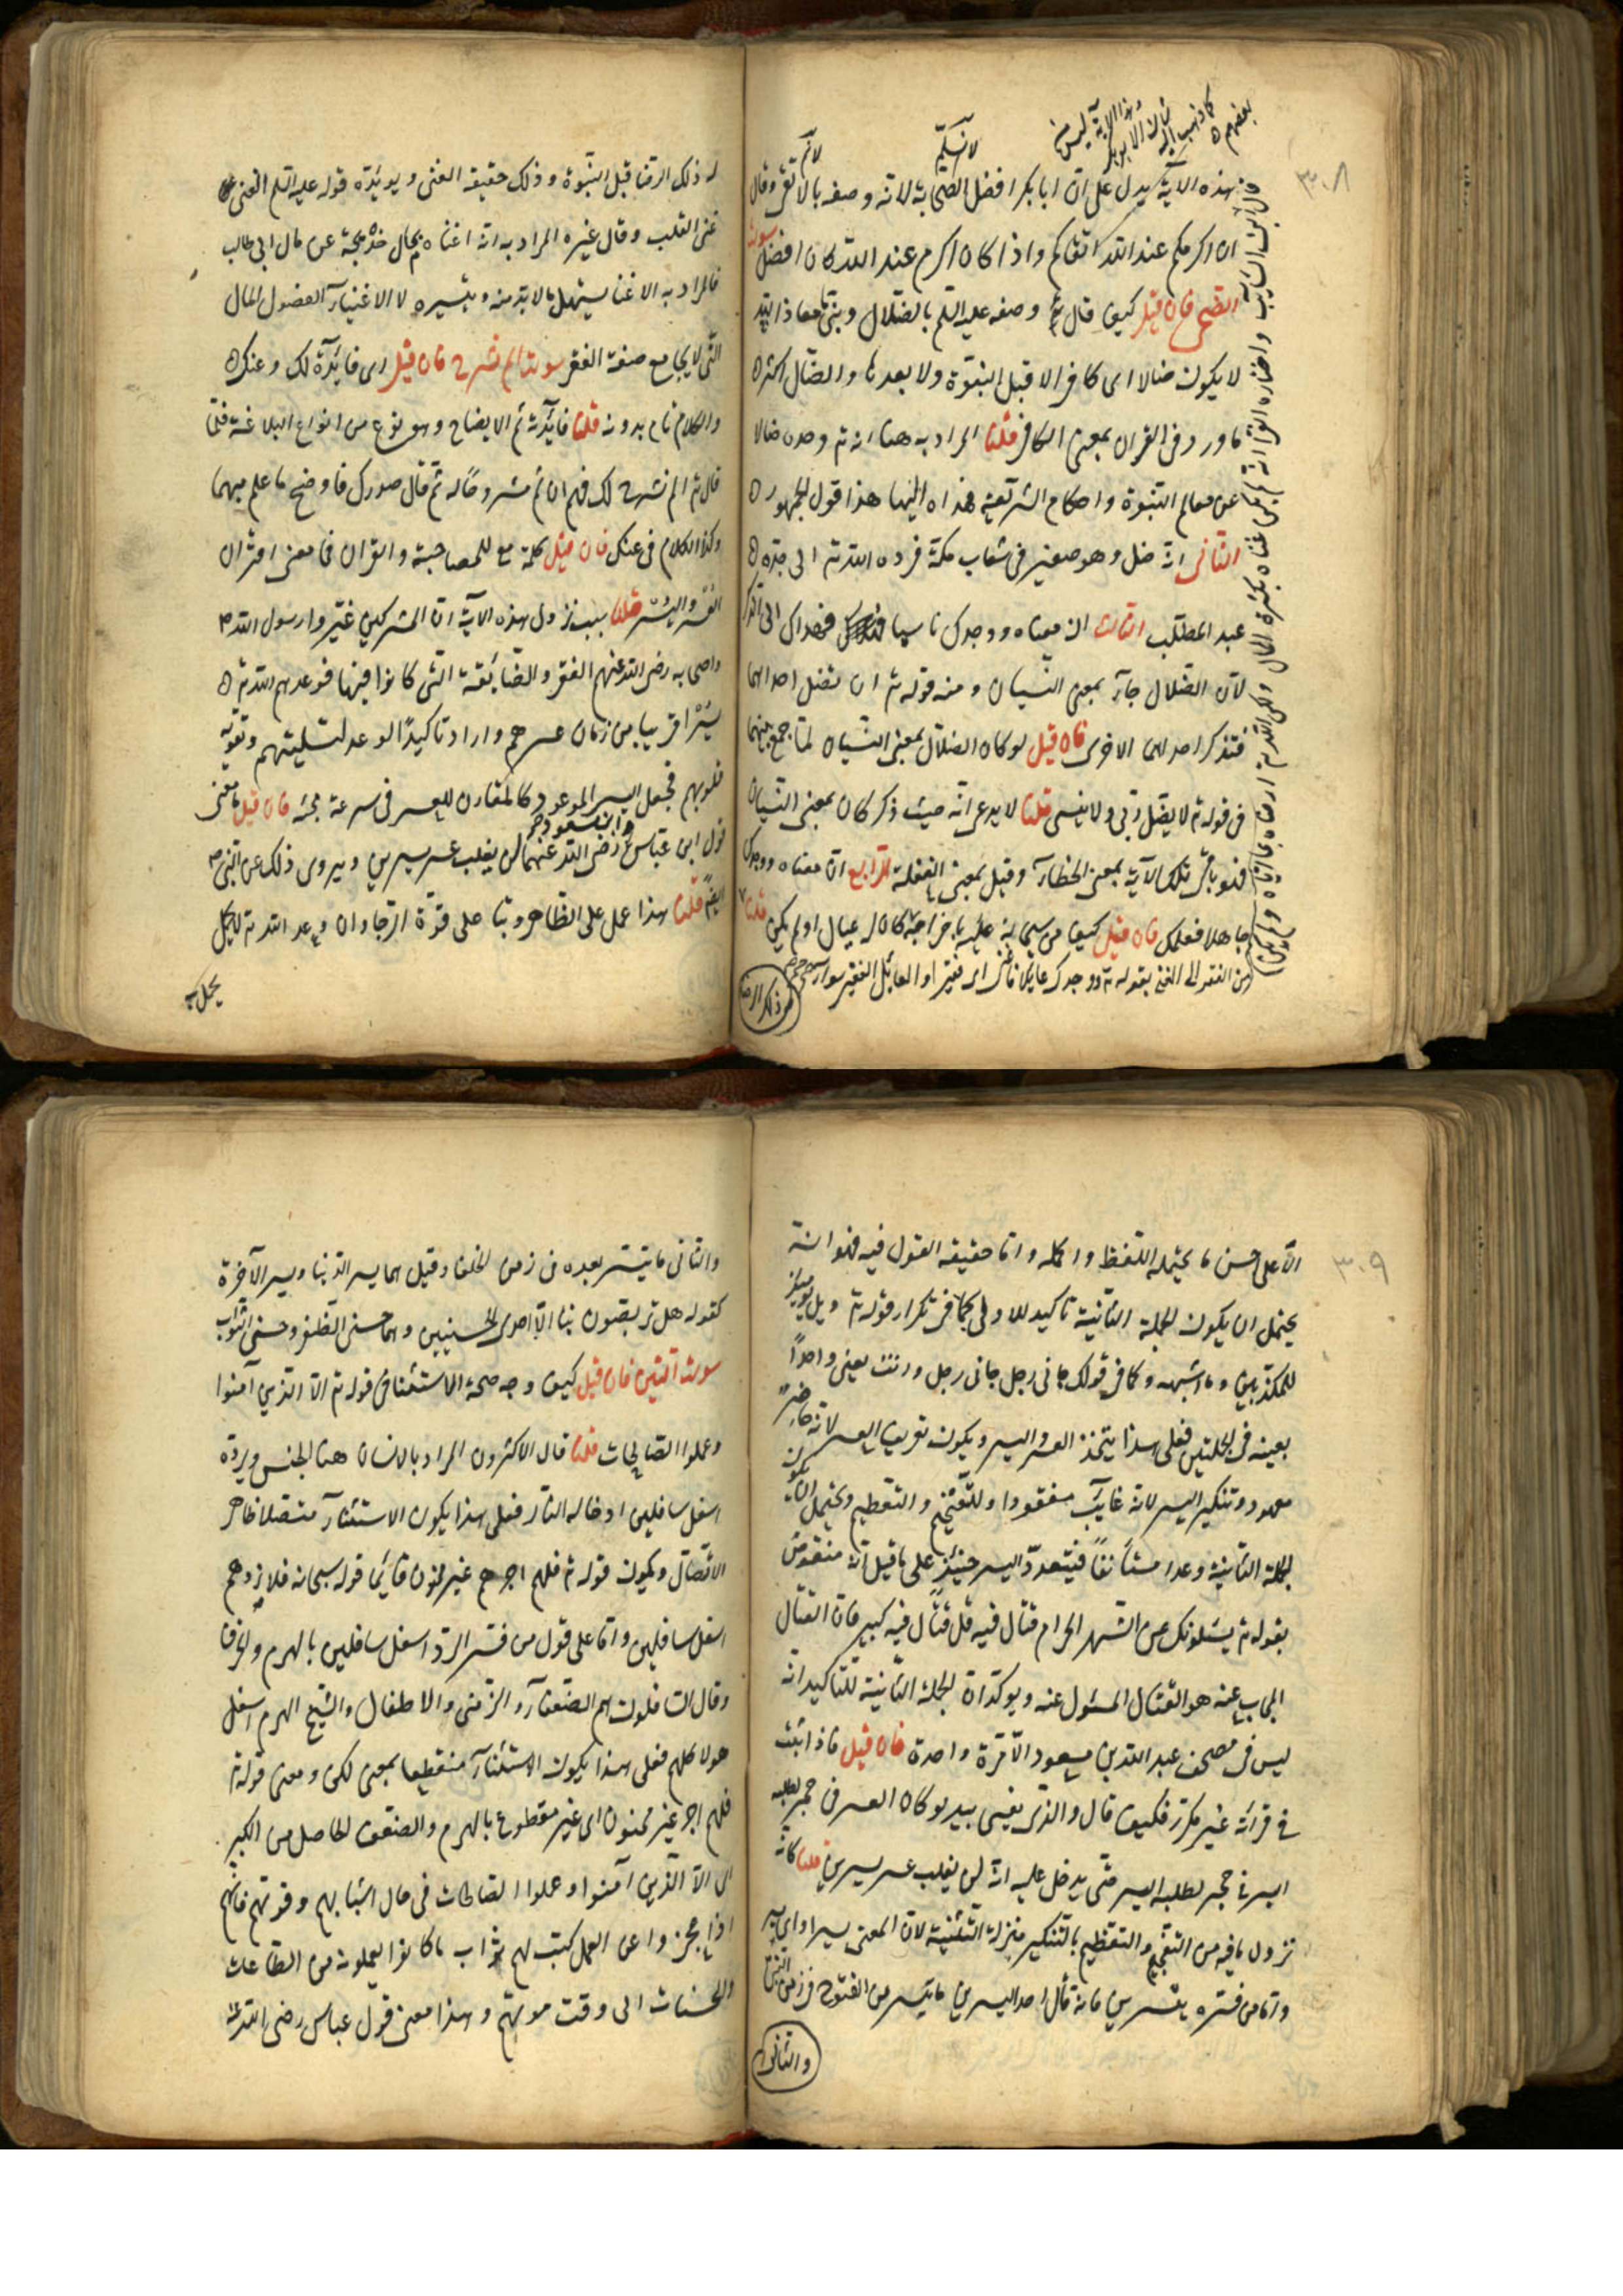 ٣٠٨
بعضهم
لا نسلم
فهذه الآية يدل على ان ابا بكر افضل الصحابة لانه وصفه بالاتقى وقال
ان اكرمكم عند الله اتقاكم واذا كان اكرم عند الله كان افضل سورة
الضحى فان قيل كيف قال تع وصفه عليه السلم بالضلال ونبى معاذ الله
لا يكون ضالا اى كافرا لا قبل النبوة ولا بعدها والضال اكثر
ما ورد فى القران بمعنى الكافر قلنا المراد به هنا انه تع وجده ضالا
عن معالم النبوة واحكام الشريعة فهداه اليها هذا قول الجمهور
الثانى انه ضل وهو صغير فى شعاب مكة فرده الله تع الى جده
عبد المطلب الثالث ان معناه ووجدك ناسيا فهداك الى الذكر
لان الضلال جاء بمعنى النسيان ومنه قوله تع ان تضل احداهما
فتذكر احداهما الاخرى فان قيل لو كان الضلال بمعنى النسيان لما جمع بينهما
فى قوله تع لا يضل ربى ولا ينسى قلنا لا يدعى انه حيث ذكر كان بمعنى النسيان
فهو باثر تلك الآية بمعنى الخطاء وقيل بمعنى الغفلة الرابع ان معناه ووجدك
جاهلا فعلمك فان قيل كيف من سبحانه عليه باخراجه كان له عيال او لم يكن قلنا
من الفقر الى الغنى بقوله تع ووجدك عايلا فاغنى اى فقيرا والعائل الفقير سواء
له ذلك الرضا قبل النبوة وذلك حقيقة الغنى ويويده قوله عليه السلم الغنى
غنى القلب وقال غيره المراد به انه اغناه بمال خديجة عن مال ابى طالب
فالمراد به الاغنا بتسهيل ما لا بد منه وتيسيره لا الاغنياء لفضول المال
التى لا يجامع صفة الفقر سورة الم نشرح فان قيل اى فايدة لك وعنك
والكلام تام بدونه قلنا فايدته ثم الايضاح وهو نوع من انواع البلاغة فلما
قال تع الم نشرح لك فهم ان ثم مشروحا له ثم قال صدرك فاوضح ما علم مبهما
وكذا الكلام فى عنك فان قيل كلمة مع للمصاحبة والقران فما معنى اقتران
العسر واليسر قلنا سبب نزول هذه الآية ان المشركين عيروا رسول الله
واصحابه رضى الله عنهم الفقر والضائقة التى كانوا فيها فوعدهم الله تع
يسرا قريبا من زمان عسرهم واراد تاكيدا لوعد لتسليتهم وتقوية
قلوبهم فجعل اليسر الموعود كالمقارن للعسر فى سرعة مجئه فان قيل ما معنى
قول ابن عباس وابن مسعود رضى الله عنهما لن يغلب عسر يسرين ويروى ذلك عن النبى
ايضا قلنا هذا عمل على الظاهر وبنا على قوة الرجا وان وعد الله تع لا يحمل
يحمل
٣٠٩
الا على احسن ما يحتمله اللفظ واكمله واما حقيقة القول فيه فهو انه
يحتمل ان يكون الجملة الثانية تاكيد للاولى كما فى تكرار قوله تع ويل يومئذ
للمكذبين وما اشبهه وكما فى قولك جانى رجل جانى رجل وانت يعنى واحدا
بعينه فى الجملتين فعلى هذا يتخذ العسر واليسر ويكون تعريف العسر لانه حاضر
معهود وتنكير اليسر لانه غايب مفقود او للتفخيم والتعظيم ويحتمل ان يكون
الجملة الثانية وعدا مستأنفا فيتعدد اليسر حينئذ على ما قيل انه منقوض
بقوله تع يسئلونك عن الشهر الحرام قتال فيه قل قتال فيه كبير فان القتال
المجاب عنه هو القتال المسئول عنه ويوكد ان الجملة الثانية للتاكيد انه
ليس فى مصحف عبد الله بن مسعود الا مرة واحدة فان قيل فاذا ثبت
فى قرائة غير مكرر فكيف قال والذى نفسى بيده لو كان العسر فى حجر لطلبه
اليسر فى حجر لطلبه اليسر حتى يدخل عليه انه لن يغلب عسر يسرين قلنا كانه
نزول ما فيه من التفخيم والتعظيم بالتنكير منزلة التثنية لان المعنى يسرا واى يسر
واما من فسره بيسرين فانه قال احد اليسرين ما تيسر من الفتوح فى زمن النبى
والثانى
والثانى ما تيسر بعده فى زمن الخلفا وقيل هما يسر الدنيا ويسر الآخرة
كقوله هل تربصون بنا الا احدى الحسنيين وهما حسنى الظفر وحسنى الثواب
سورة التين فان قيل كيف وجه صحة الاستثنا فى قوله تع الا الذين آمنوا
وعملوا الصالحات قلنا قال الاكثرون المراد بالانسان هنا الجنس ويرده
اسفل سافلين ادخاله النار فعلى هذا يكون الاستثناء متصلا ظاهر
الاتصال ويكون قوله تع فلهم اجرهم غير ممنون قايما قوله سبحانه فلا نردهم
اسفل سافلين واما على قول من فسر الرد اسفل سافلين بالهرم والخرف
وقال السافلون هم الضعفاء والزمنى والاطفال والشيخ الهرم اسفل
هولا كلهم فعلى هذا يكون الاستثناء منقطعا بمعنى لكن ومعنى قوله تع
فلهم اجر غير ممنون اى غير مقطوع بالهرم والضعف الحاصل من الكبر
اى الا الذين آمنوا وعملوا الصالحات فى حال شبابهم وقوتهم فانهم
اذا عجزوا عن العمل كتب لهم ثواب ما كانوا يعملونه من الطاعات
والحسنات الى وقت موتهم وهذا معنى قول عباس رضى الله عنه